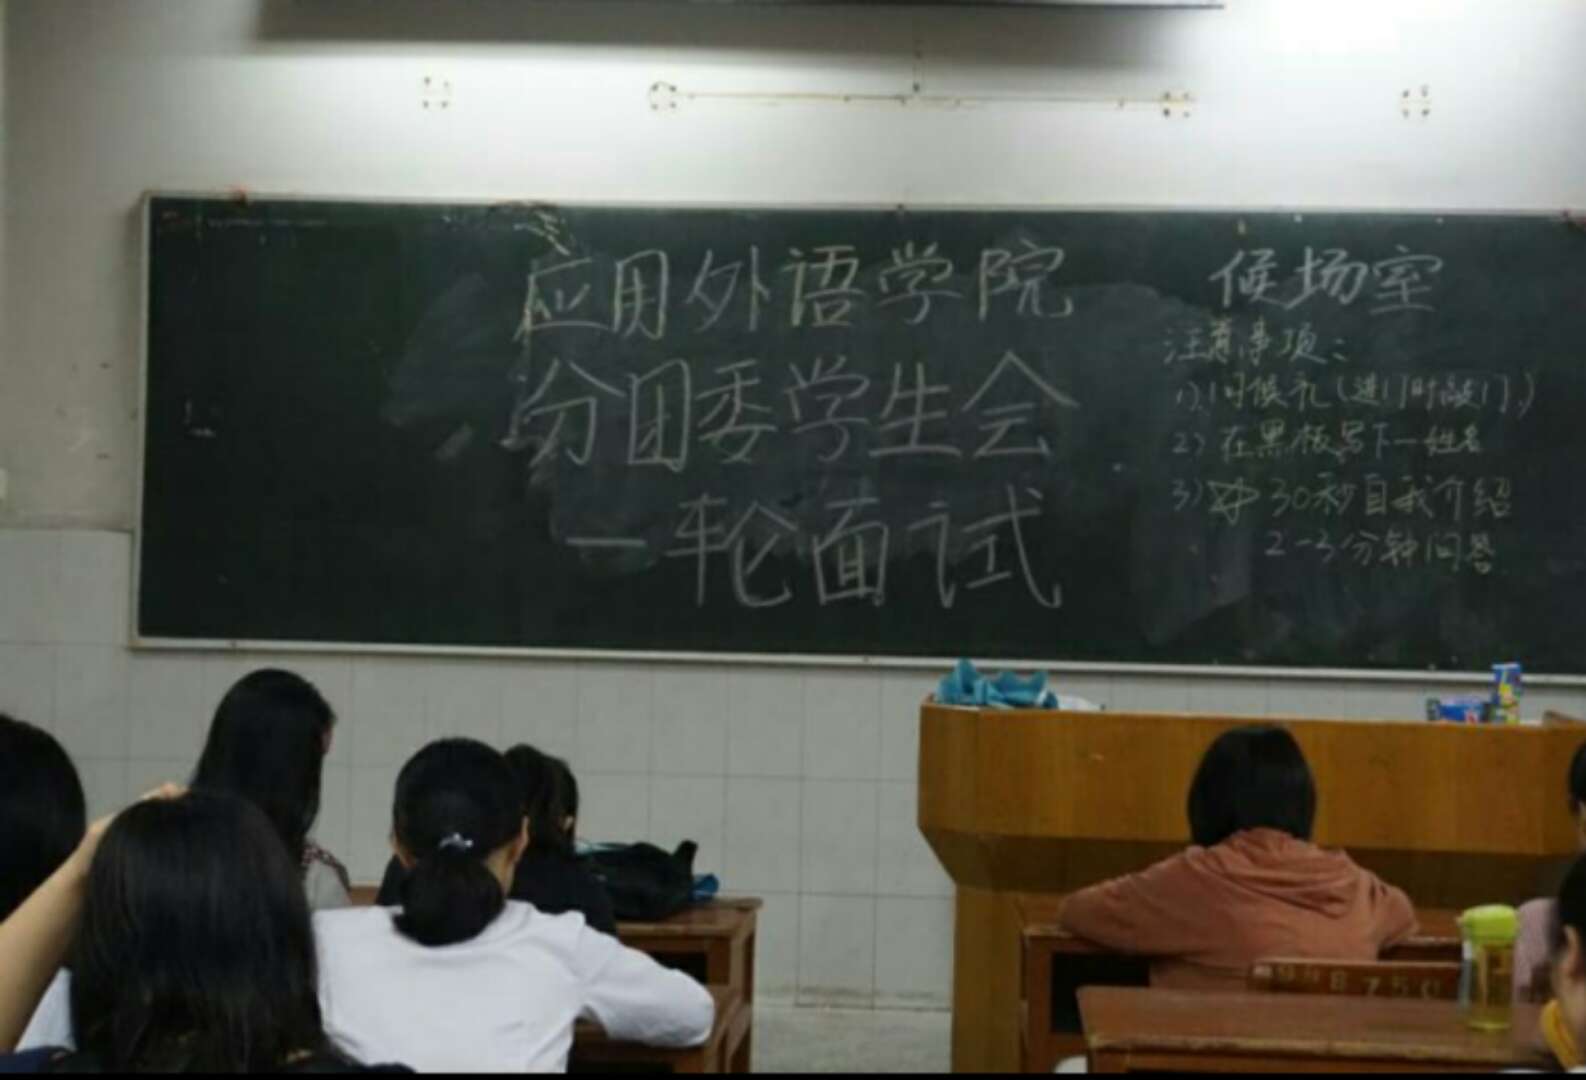 应用外语学院
分团委学生会
一轮面试
候场室
注意事项:
1)问候礼(进门时敲门)
2)在黑板写下一姓名
3) 30秒自我介绍
2-3分钟问答